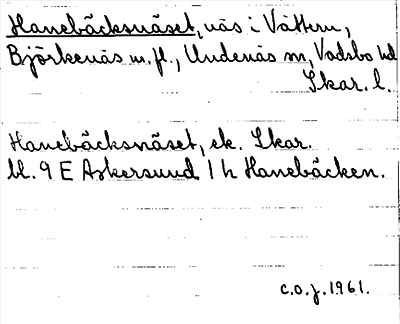 Hanebäcksnäset, näs i Vättern,
Björkenäs m.fl., Undenäs sn, Vadsbo hd
Skar. l.
Hanebäcksnäset, ek. Skar.
bl. 9 E Askersund 1 h Hanebäcken.
c.o.j. 1961.